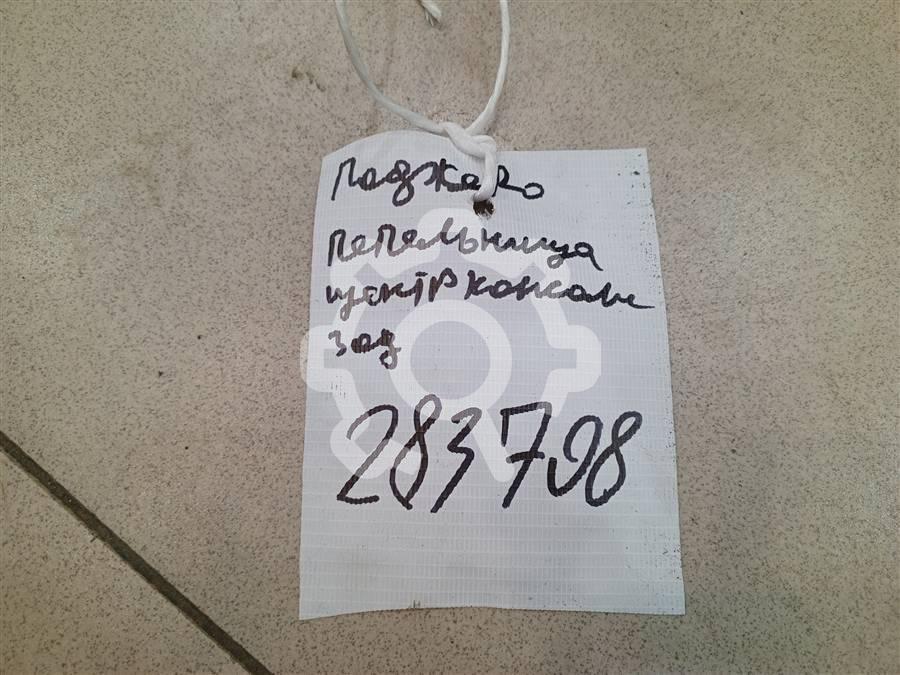 Паджеро
пепельница
центр консоли
зад
283798